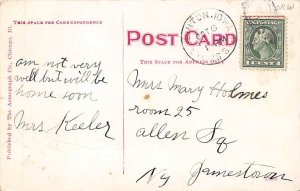 THIS SPACE FOR CORRESPONDENCE
POST CARD
THIS SPACE FOR ADDRESS ONLY
Published by The Acmegraph Co., Chicago, Ill.
am not very
well but will be
home soon
Mrs Keeler
Mrs Mary Holmes
room 25
allen Sq
Jamestown
Ny
1 CENT 1